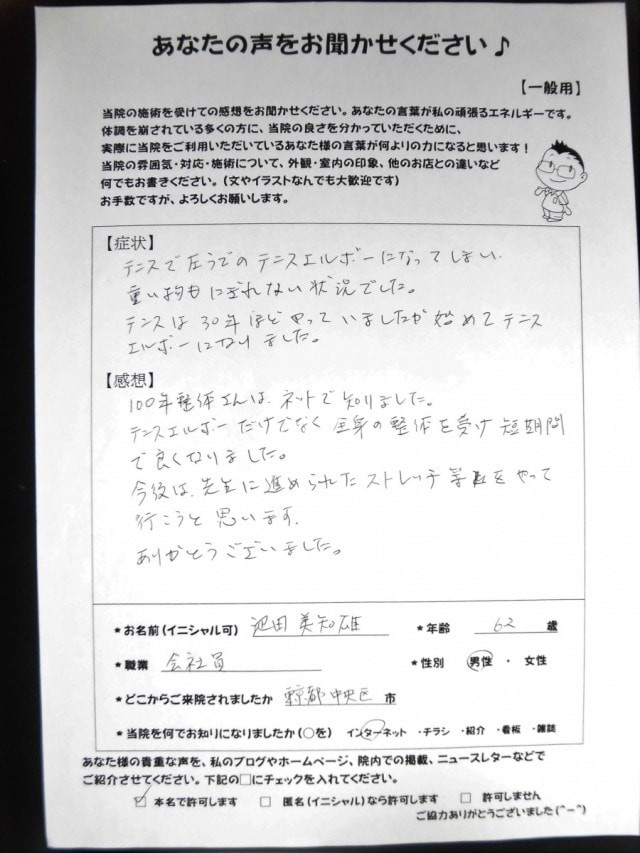 あなたの声をお聞かせください♪
【一般用】
当院の施術を受けての感想をお聞かせください。あなたの言葉が私の頑張るエネルギーです。
体調を崩されている多くの方に、当院の良さを分かっていただくために、
実際に当院をご利用いただいているあなた様の言葉が何よりの力になると思います!
当院の雰囲気・対応・施術について、外観・室内の印象、他のお店との違いなど
何でもお書きください。(文やイラストなんでも大歓迎です)
お手数ですが、よろしくお願いします。
【症状】
テニスで左うでのテニスエルボーになってしまい
重い物もにぎれない状況でした。
テニスは30年ほどやっていましたが始めてテニス
エルボーになりました。
【感想】
100年整体さんは、ネットで知りました。
テニスエルボーだけでなく全身の整術を受け短期間
で良くなりました。
今後は、先生に進められたストレッチ等をやって
行こうと思います。
ありがとうございました。
*お名前(イニシャル可) 池田美知雄 *年齢 62 歳
*職業 会社員 *性別 男性・女性
*どこからご来院されましたか 東京都中央区 市
*当院を何でお知りになりましたか(○を) インターネット ・チラシ ・紹介 ・看板 ・雑誌
あなた様の貴重な声を、私のブログやホームページ、院内での掲載、ニュースレターなどで
ご紹介させてください。下記の□にチェックを入れてください。
☑ 本名で許可します □ 匿名(イニシャル)なら許可します □ 許可しません
ご協力ありがとうございました(^-^)